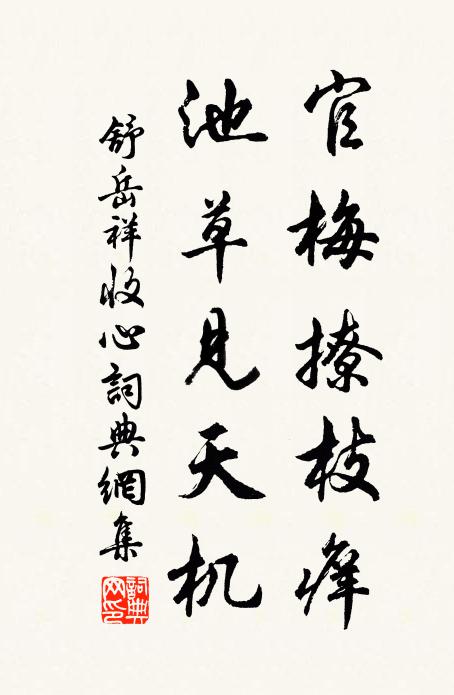 官梅撩枝痒
池草見天机
舒岳祥收心詞典網集
詞典网印